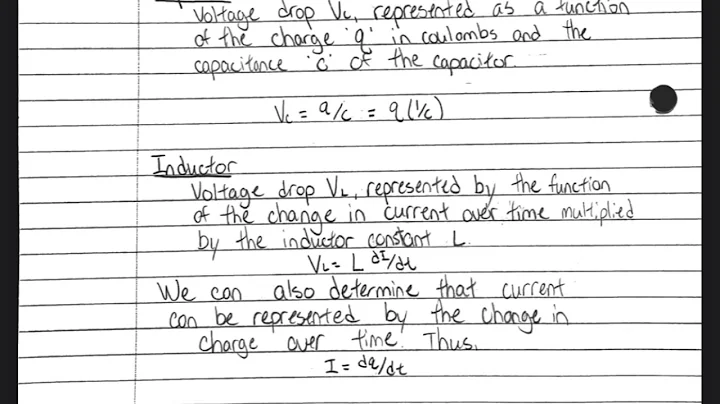 Voltage drop Vc, represented as a function
of the charge 'q' in coulombs and the
capacitance 'c' of the capacitor
Vc = q/c = q(1/c)
Inductor
Voltage drop VL, represented by the function
of the change in current over time multiplied
by the inductor constant L.
VL = L dI/dt
We can also determine that current
can be represented by the change in
charge over time. Thus,
I = dq/dt